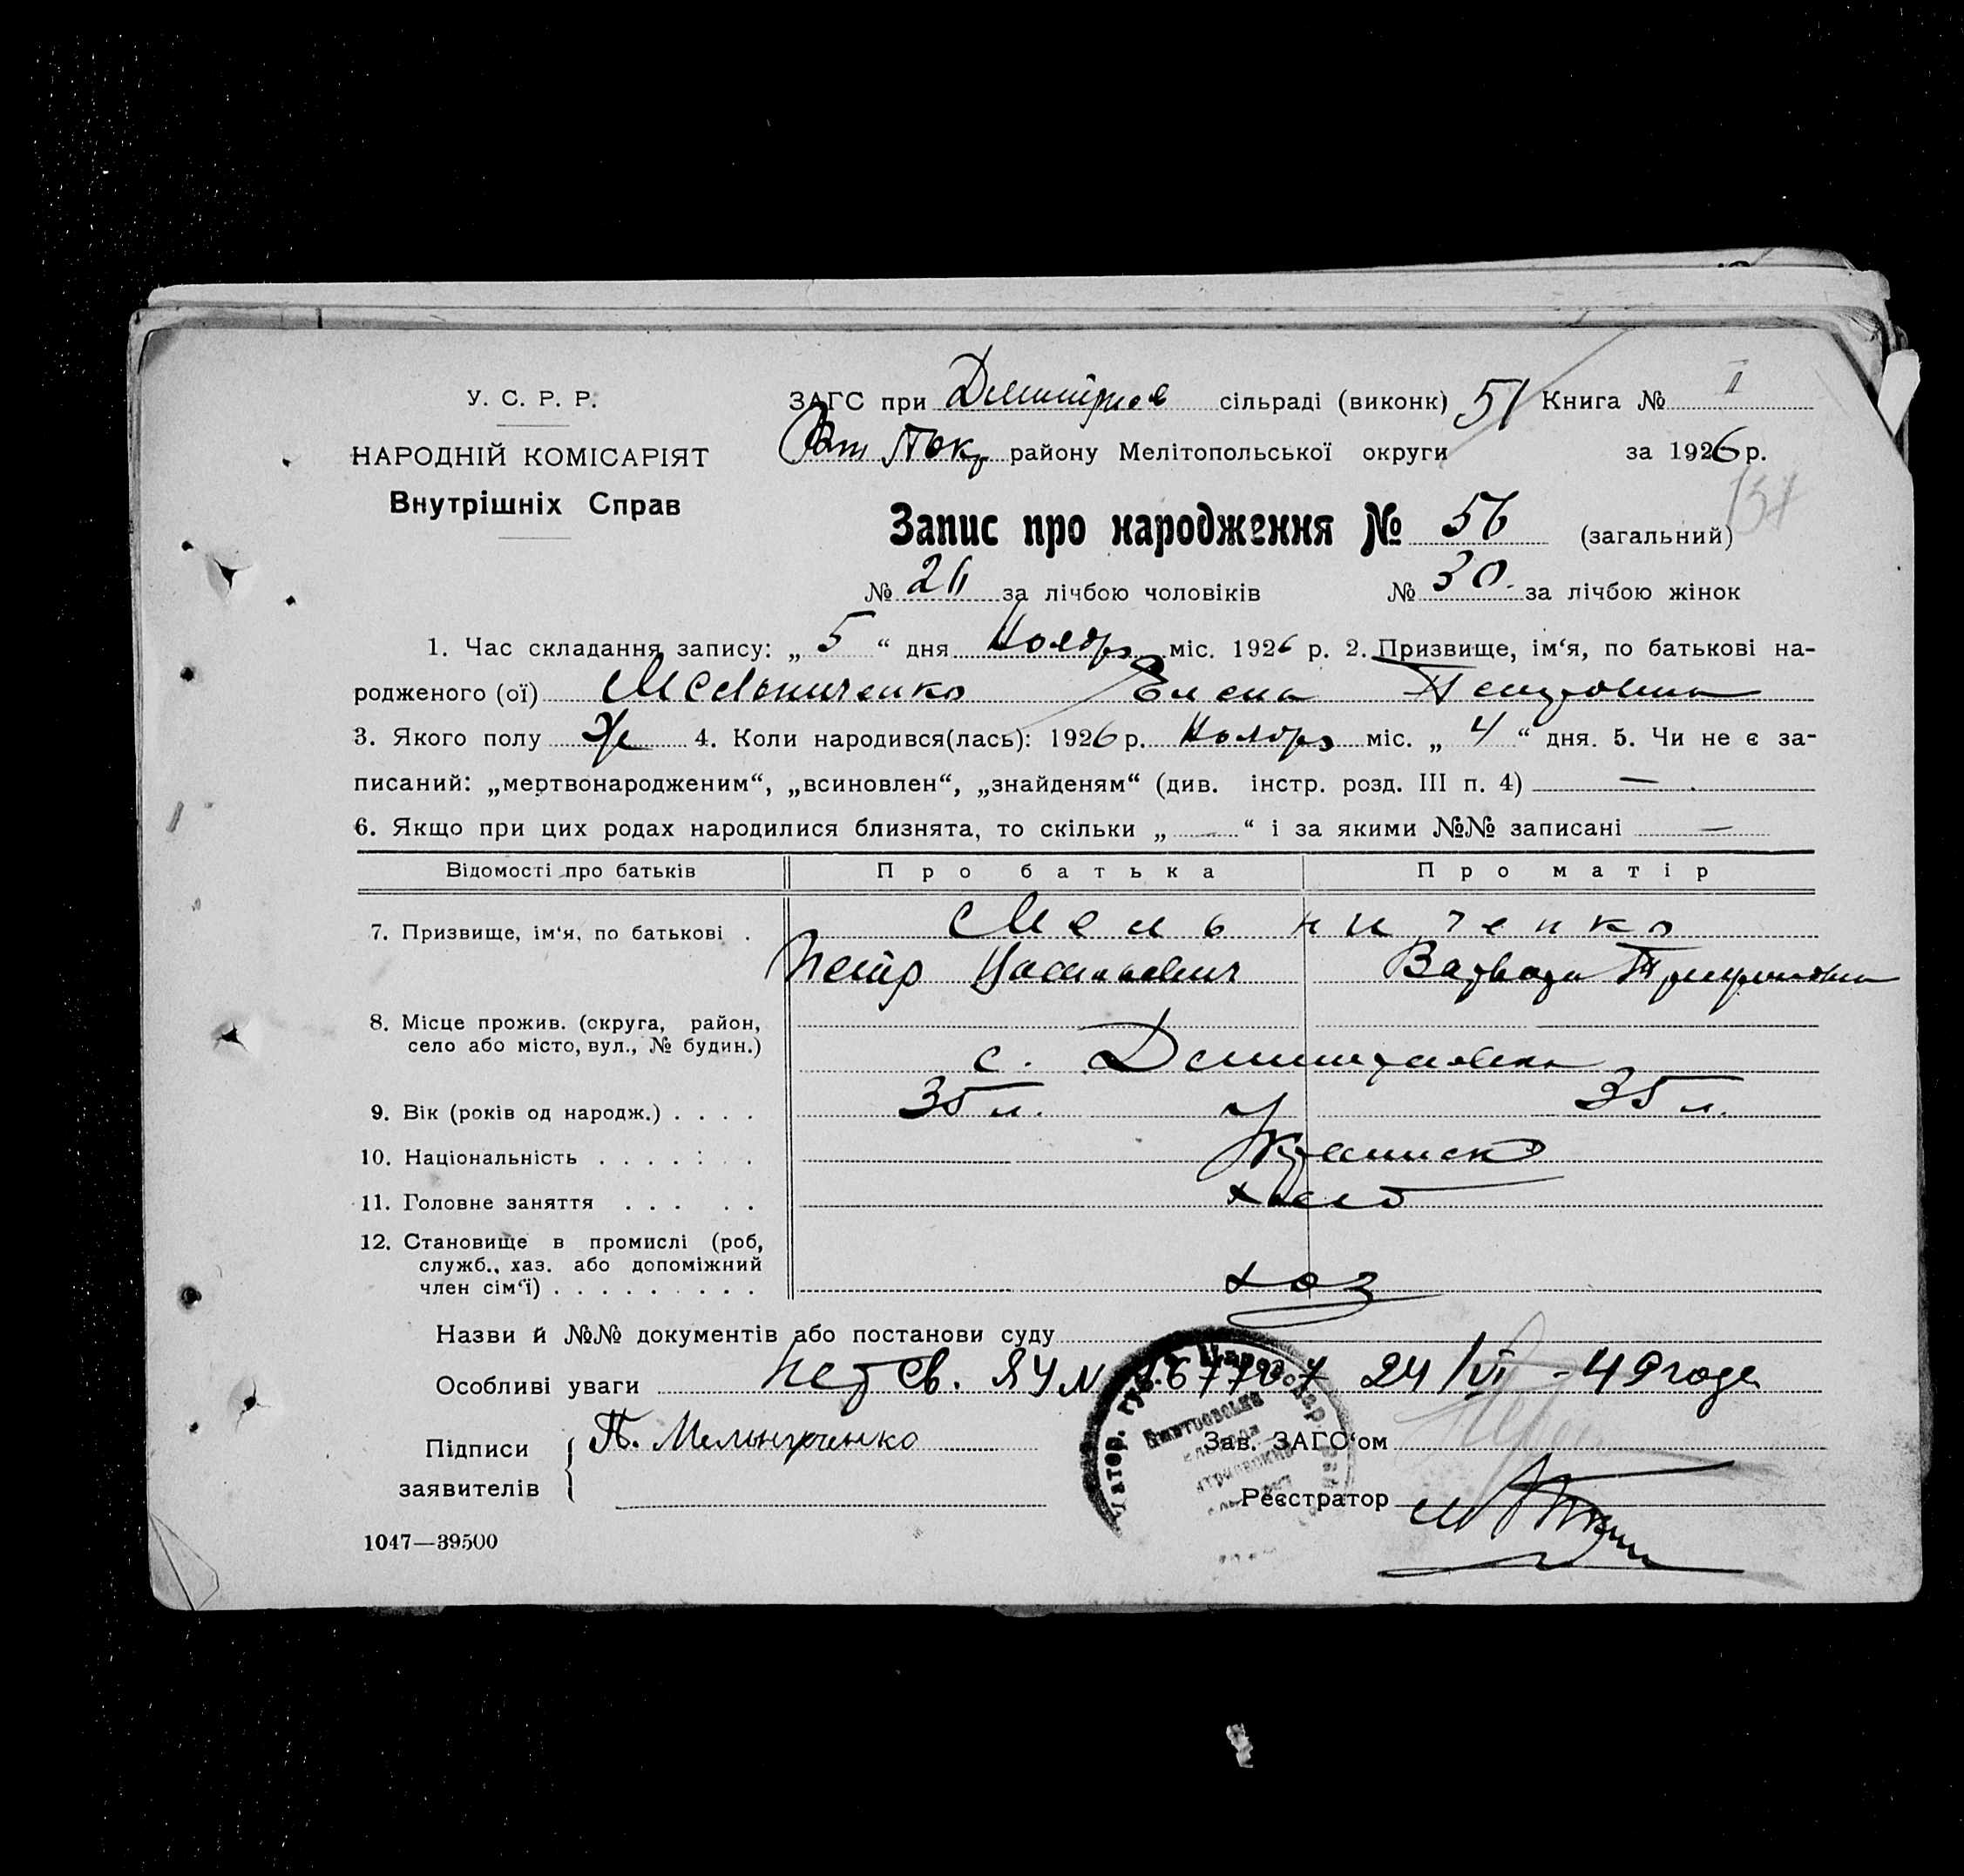 У. С. Р. Р.
НАРОДНІЙ КОМІСАРІЯТ
Внутрішніх Справ
ЗАГС при Димитров сільраді (виконк) 51 Книга № II
району Мелітопольської округи за 1926 р.
Запис про народження № 56 (загальний)
№ 26 за лічбою чоловіків № 30 за лічбою жінок
1. Час складання запису: „ 5 “ дня Ноября міс. 1926 р. 2. Призвище, ім'я, по батькові на-
родженого (ої) Мельниченко Елена Петровна
3. Якого полу ж 4. Коли народився(лась): 1926 р. Ноября міс. „ 4 “ дня. 5. Чи не є за-
писаний: „мертвонародженим“, „всиновлен“, „знайденям“ (див. інстр. розд. III п. 4) —
6. Якщо при цих родах народилися близнята, то скільки „ — “ і за якими №№ записані —
Відомості про батьків Про батька Про матір
7. Призвище, ім'я, по батькові . Мельниченко
Петр Варвара
8. Місце прожив. (округа, район,
село або місто, вул., № будин.) с. Димитровка
9. Вік (років од народж.) . . . . 35 л. 35 л.
10. Національність . . . . . .
11. Головне заняття . . . . . хлеб
12. Становище в промислі (роб,
служб., хаз. або допоміжний
член сім'ї) . . . . . . . . . хоз
Назви й №№ документів або постанови суду
Особливі уваги св. ЯЧ № 24/VI - 49 года
Підписи П. Мельниченко Зав. ЗАГС'ом
заявителів Реєстратор
1047—39500